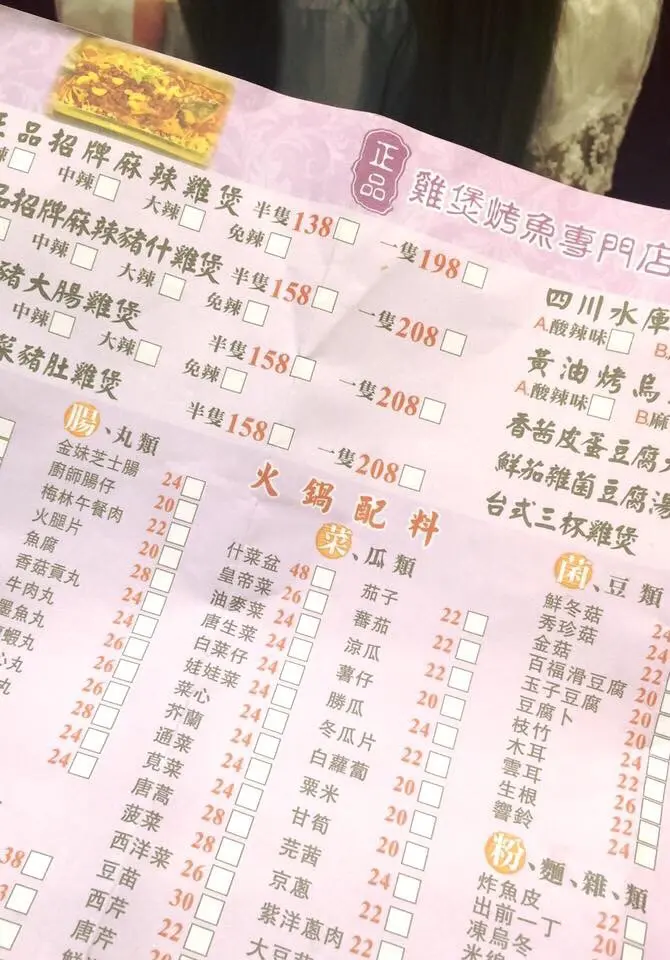 正品
雞煲烤魚專門店
正品招牌麻辣雞煲 半隻138 一隻198
中辣 大辣 免辣
品招牌麻辣豬什雞煲 半隻158 一隻208
中辣 大辣 免辣
豬大腸雞煲 半隻158 一隻208
中辣 大辣 免辣
豬肚雞煲 半隻158 一隻208
四川水庫
A.酸辣味 B.
黃油烤烏
A.酸辣味 B.麻
香茜皮蛋豆腐
鮮茄雜菌豆腐湯
台式三杯雞煲
火鍋配料
腸、丸類
金妹芝士腸 24
廚師腸仔 20
梅林午餐肉 22
火腿片 20
魚腐 28
香菇貢丸 24
牛肉丸 24
墨魚丸 26
蝦丸 26
心丸 26
丸 28
24
24
38
菜、瓜類
什菜盆 48
皇帝菜 26
油麥菜 24
唐生菜 24
白菜仔 24
娃娃菜 24
菜心 24
芥蘭 24
通菜 24
莧菜 24
唐蒿 28
菠菜 28
西洋菜 26
豆苗 30
西芹 22
唐芹
茄子 22
蕃茄 22
涼瓜 22
薯仔 20
勝瓜 24
冬瓜片 22
白蘿蔔 20
粟米 20
甘筍 22
芫茜 24
京蔥 22
紫洋蔥肉 22
大豆
菌、豆類
鮮冬菇
秀珍菇 24
金菇 22
百福滑豆腐 20
玉子豆腐 20
豆腐卜 20
枝竹 24
木耳 22
雲耳 26
生根 22
響鈴 24
粉、麵、雜類
炸魚皮 22
出前一丁 20
凍烏冬
米線